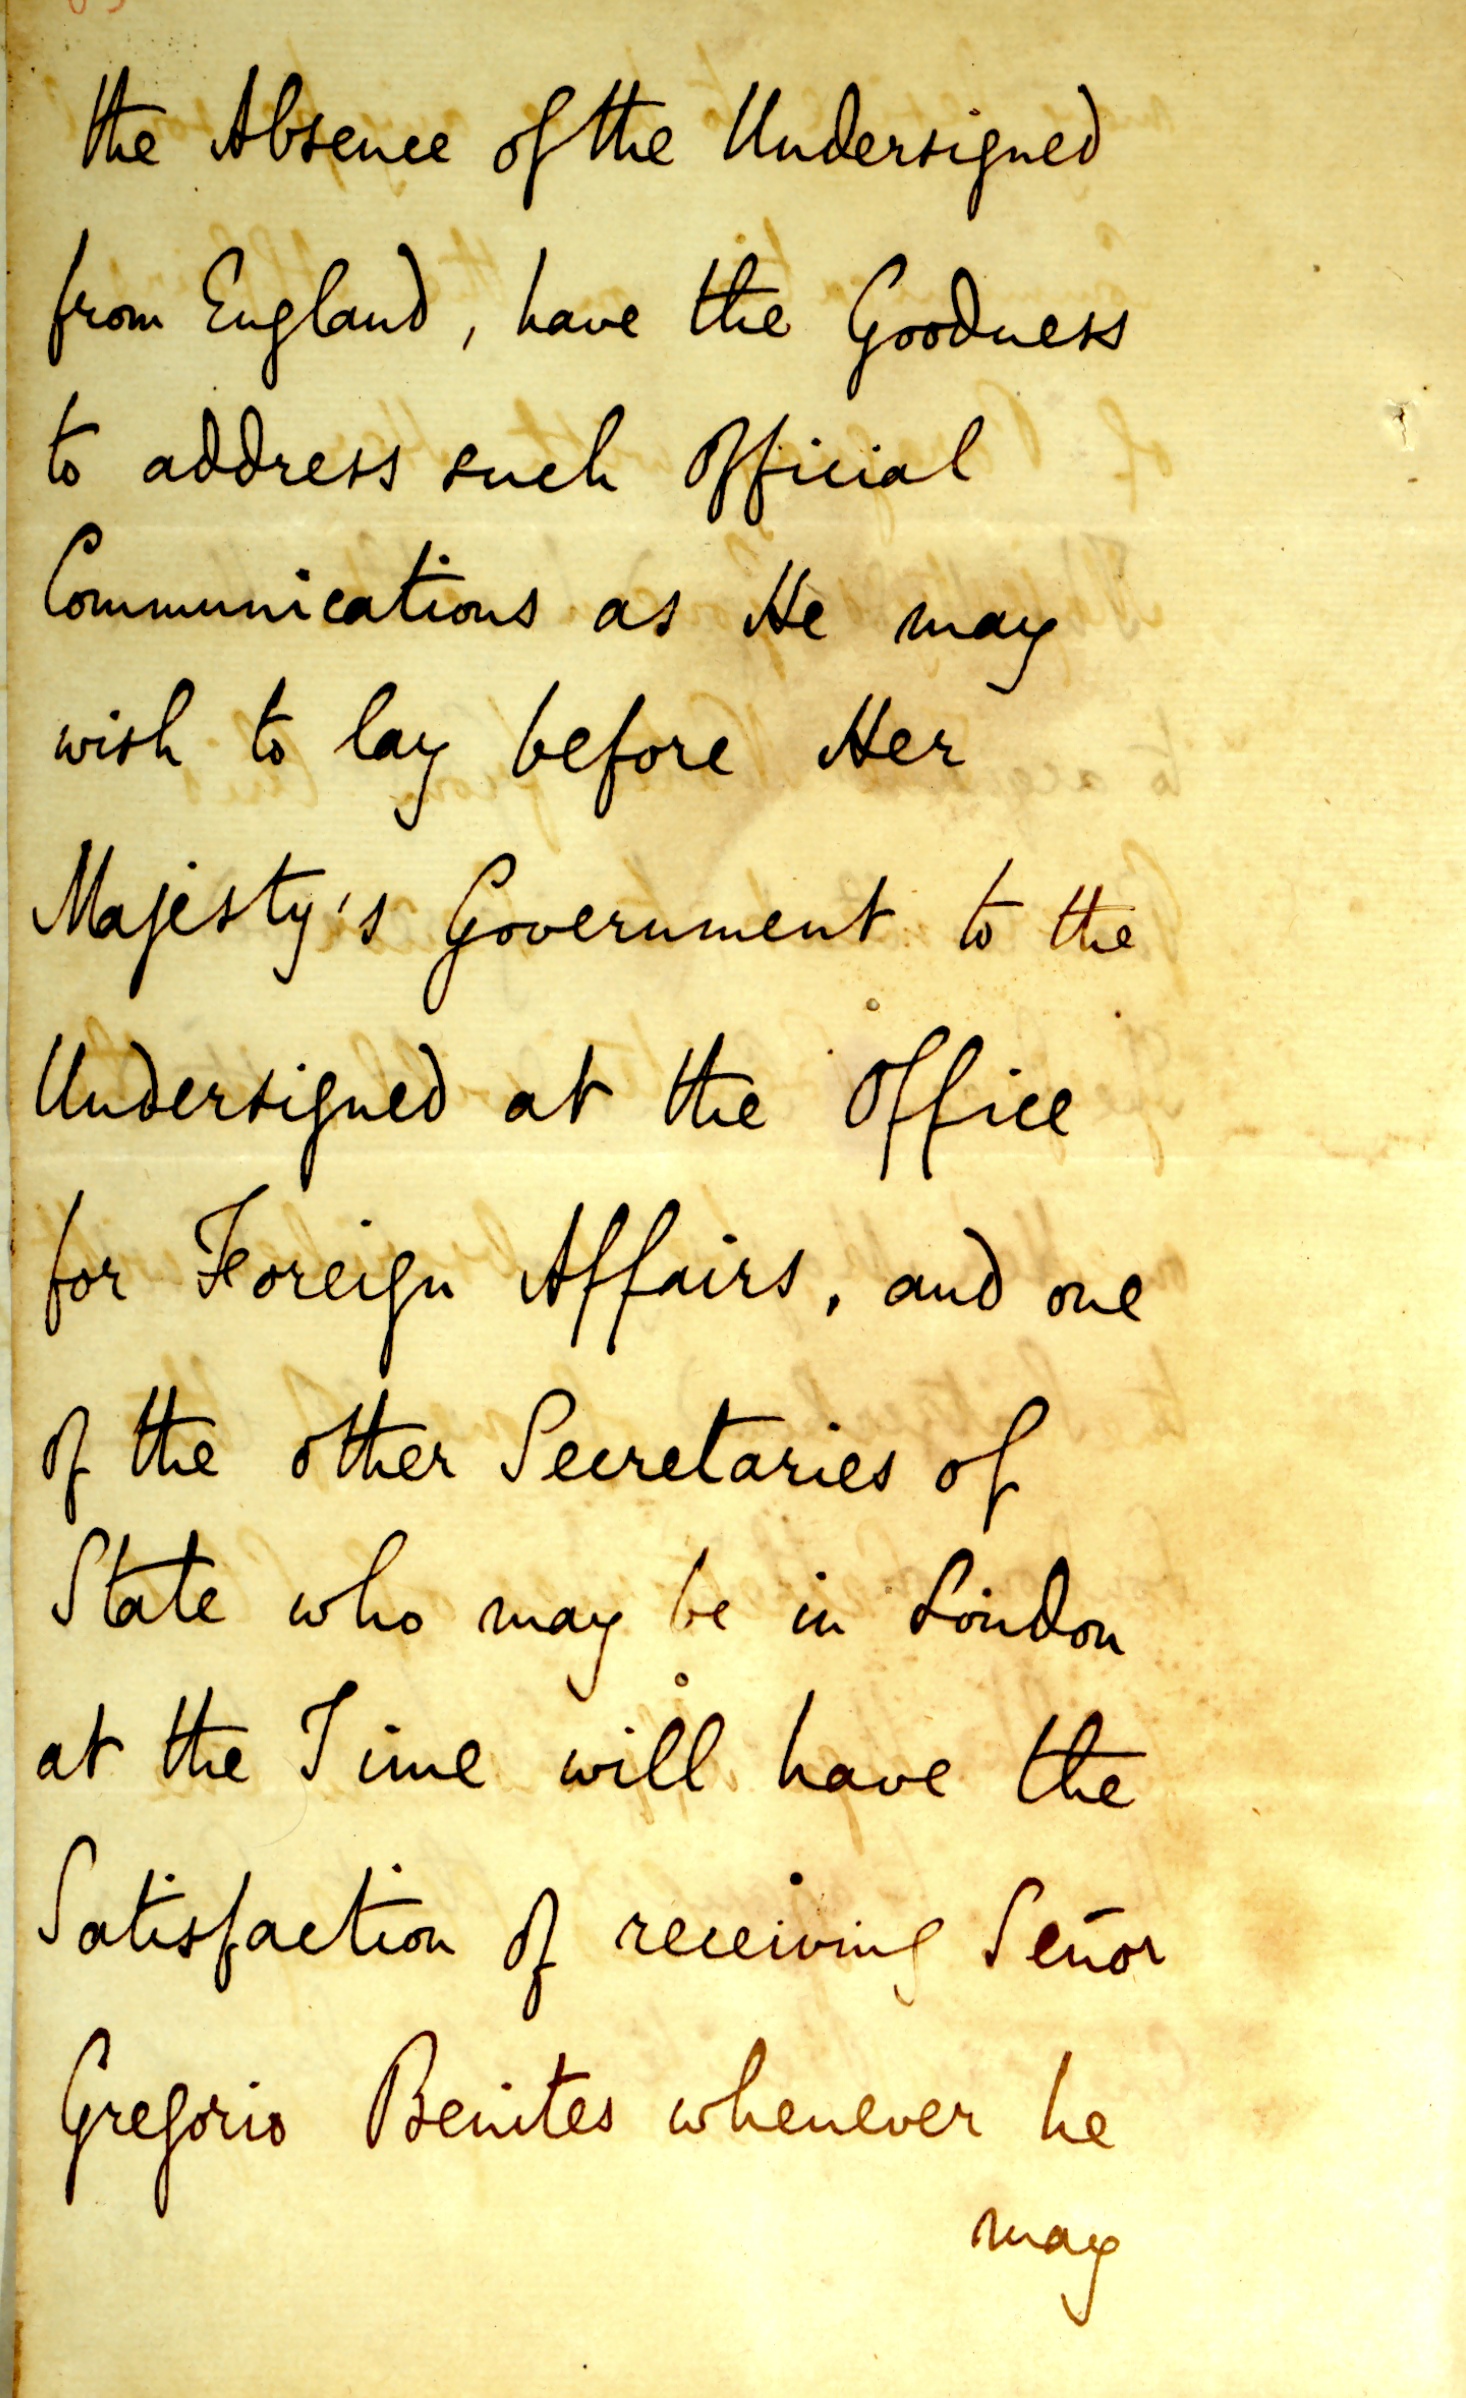 the Absence of the Undersigned
from England, have the Goodness
to address such Official
Communications as He may
wish to lay before Her
Majesty's Government to the
Undersigned at the Office
for Foreign Affairs, and one
of the other Secretaries of
State who may be in London
at the Time will have the
Satisfaction of receiving Señor
Gregorio Benites whenever he
may